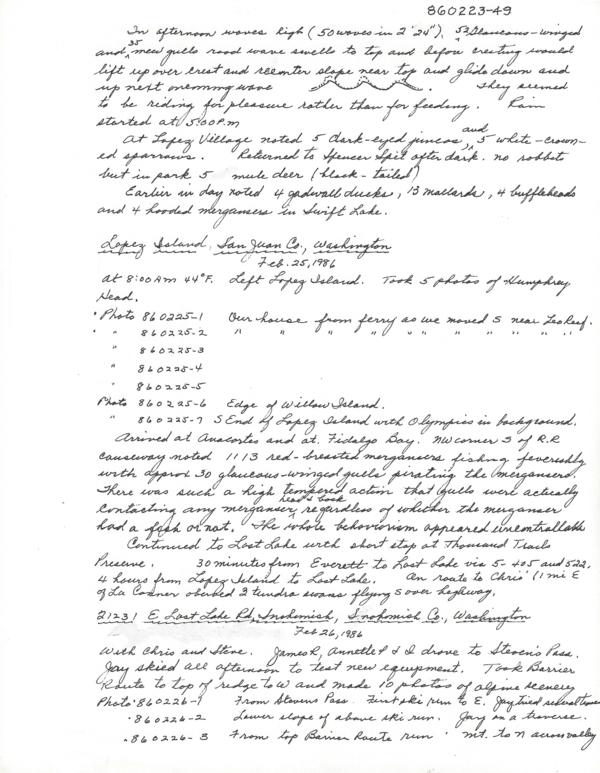 860223-49
In afternoon waves high (50 waves in 2' 24"), 53 Glaucous-winged
and 35 mew gulls rood wave swells to top and before cresting would
lift up over crest and reenter slope near top and glide down and
up next oncoming wave . They seemed
to be riding for pleasure rather than for feeding. Rain
started at 5:00 P.M
At Lopez Village noted 5 dark-eyed juncos and 5 white-crown-
ed sparrows. Returned to Spencer Spit after dark. no rabbits
but in park 5 mule deer (black-tailed)
Earlier in day noted 4 gadwall ducks, 13 mallards, 4 buffleheads
and 4 hooded mergansers in Swift Lake.
Lopez Island, San Juan Co., Washington
Feb. 25, 1986
At 8:00 AM 44°F. Left Lopez Island. Took 5 photos of Humphrey
Head.
Photo 860225-1 Our house from ferry as we moved S near Leo Reef.
" 860225-2 " " " " " " " " " " "
" 860225-3
" 860225-4
" 860225-5
Photo 860225-6 Edge of Willow Island.
" 860225-7 S End of Lopez Island with Olympics in background.
Arrived at Anacortes and at Fidalgo Bay. NW corner S of R.R
causeway noted 1113 red-breasted mergansers fishing feverishly
with approx 30 glaucous-winged gulls pirating the mergansers.
There was such a high tempered action that gulls were actually
contacting any merganser head & back regardless of whether the merganser
had a fish or not. The whole behaviorism appeared uncontrollable
Continued to Lost Lake with short stop at Thousand Trails
Preserve. 30 minutes from Everett to Lost Lake via 5-405 and 522.
4 hours from Lopez Island to Lost Lake. An route to Chris' (1 mi E
of La Conner observed 2 tundra swans flying S over highway.
21231 E Lost Lake Rd, Snohomish, Snohomish Co., Washington
Feb 26, 1986
With Chris and Steve. James R, Annette P & I drove to Stevens Pass.
Jay skied all afternoon to test new equipment. Took Barrier
Route to top of redge to W and made 10 photos of alpine scenery
Photo 860226-1 From Stevens Pass. First ski run to E. Jay tried
860226-2 Lower slope of above ski run. Jay on a traverse.
860226-3 From top Barrier Route run mt. to N across valley